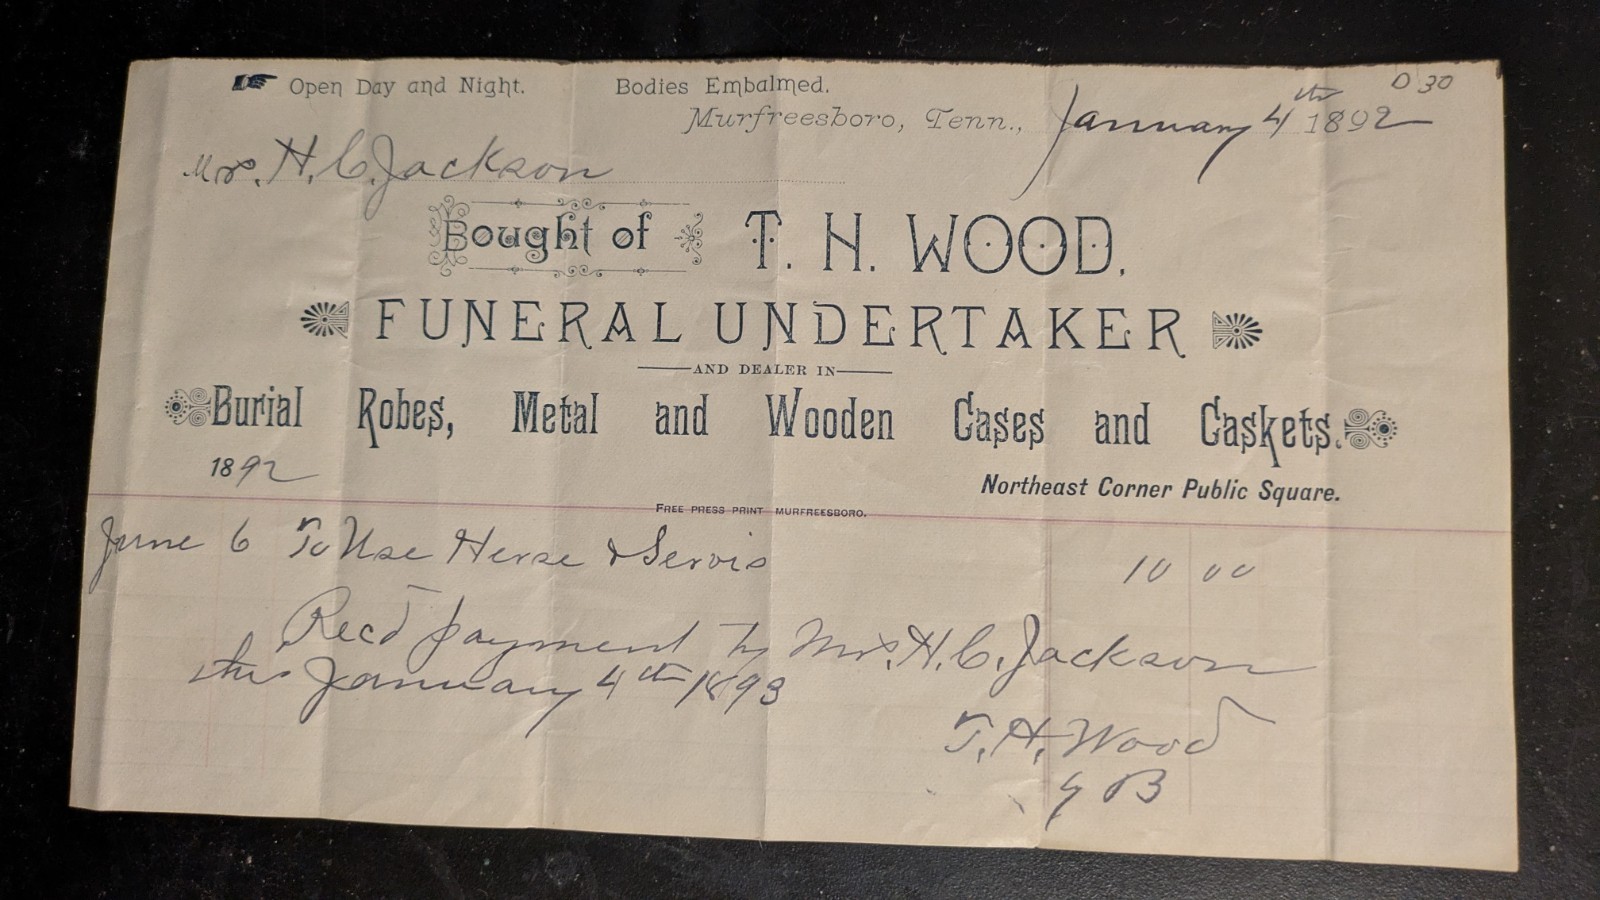 Open Day and Night. Bodies Embalmed. D 30
Murfreesboro, Tenn., January 4th 1892
Mrs. H. C. Jackson
Bought of T. H. WOOD.
FUNERAL UNDERTAKER
AND DEALER IN
Burial Robes, Metal and Wooden Cases and Caskets.
1892
Northeast Corner Public Square.
FREE PRESS PRINT MURFREESBORO.
June 6 To Use Herse & Servis 10 00
Recd payment by Mrs. H. C. Jackson
this January 4th 1893
T. H. Wood
B